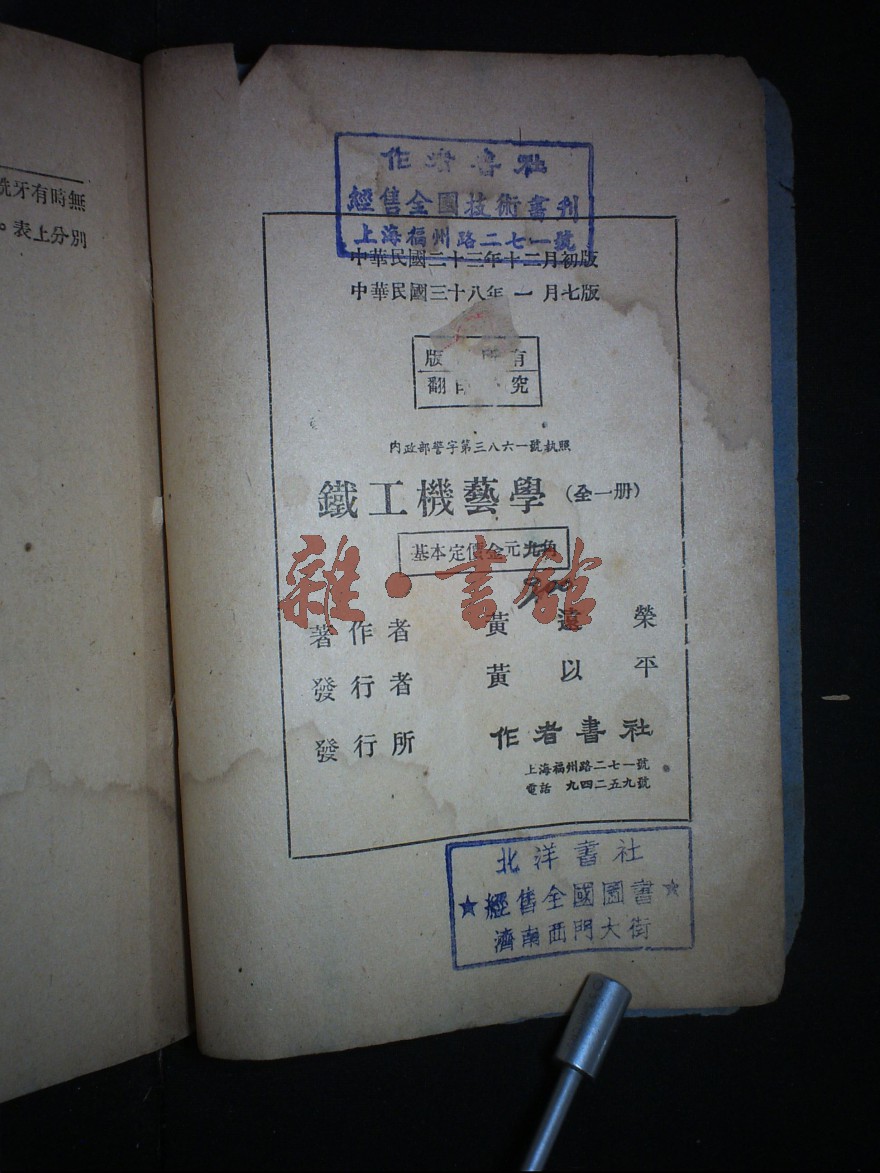 無時有牙
表上分別
作者書社
經售全國技術書刊
上海福州路二七一號
中華民國二十三年十二月初版
中華民國三十八年一月七版
版 所有
翻印 究
內政部警字第三八六一號執照
鐵工機藝學(全一册)
基本定價金元九角
雜·書館
著作者 黃遠榮
發行者 黃以平
發行所 作者書社
上海福州路二七一號
電話 九四二五九號
北洋書社
★經售全國圖書★
濟南西門大街